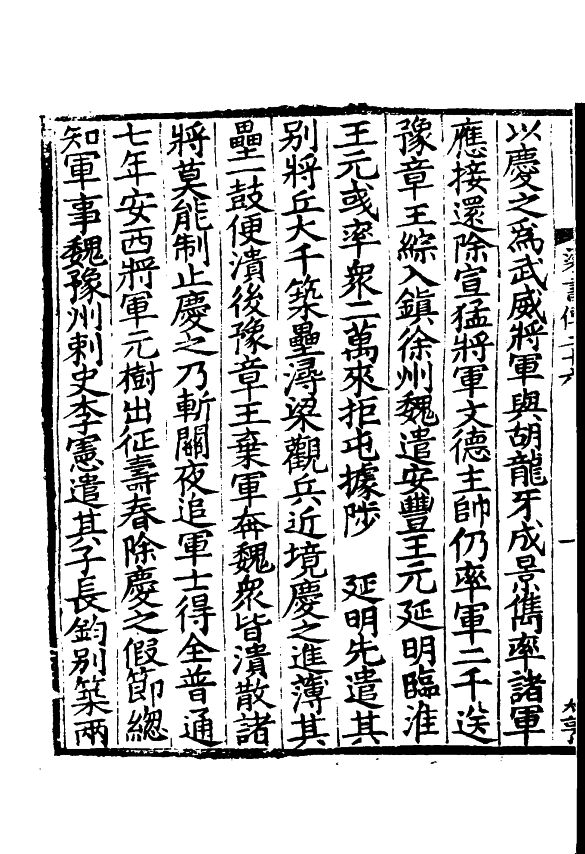 梁書傳二十六
一
以慶之爲武威將軍與胡龍牙成景儁率諸軍
應接還除宣猛將軍文德主帥仍率軍二千送
豫章王綜入鎮徐州魏遣安豐王元延明臨淮
王元彧率衆二萬來拒屯據陟 延明先遣其
别將丘大千築壘潯梁觀兵近境慶之進薄其
壘一鼓便潰後豫章王棄軍奔魏衆皆潰散諸
將莫能制止慶之乃斬關夜追軍士得全普通
七年安西將軍元樹出征壽春除慶之假節緫
知軍事魏豫州刺史李憲遣其子長鈞别築兩